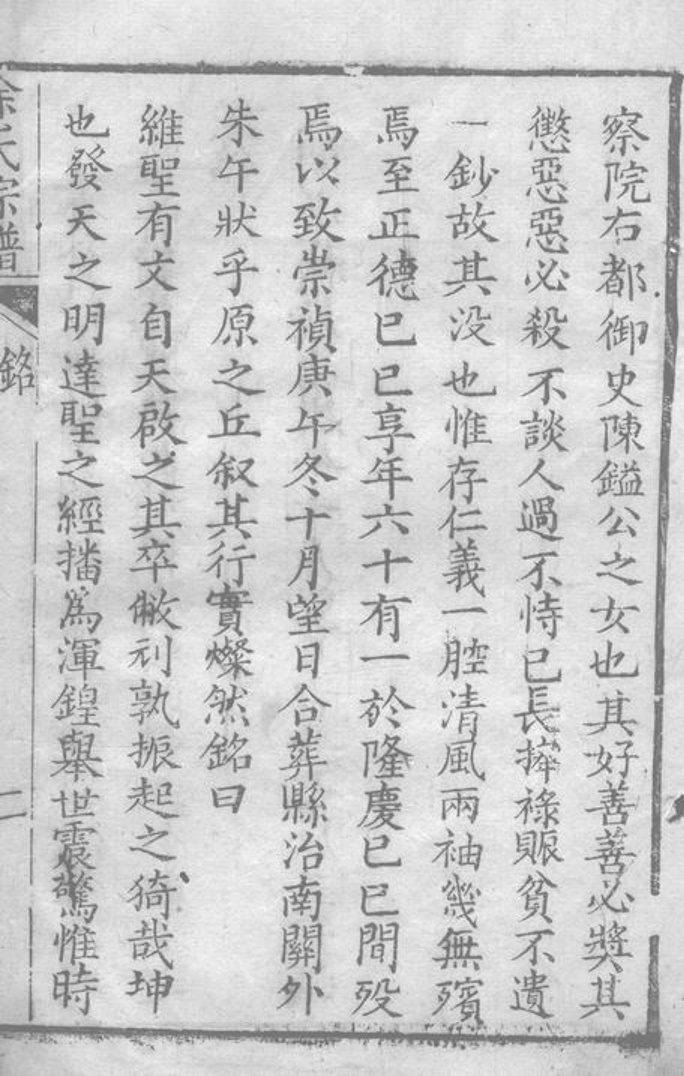 察院右都御史陳鎰公之女也其好善善必獎其
懲惡惡必殺不談人過不恃己長捧祿賑貧不遺
一鈔故其没也惟存仁義一腔清風兩袖幾無殯
焉至正德己巳享年六十有一於隆慶己巳間殁
焉以致崇禎庚午冬十月望日合葬縣治南關外
朱午狀乎原之丘叙其行實燦然銘曰
維聖有文自天啟之其卒敝刓孰振起之猗哉坤
也發天之明達聖之經播為渾鍠舉世震驚惟時
余氏宗譜
銘
二